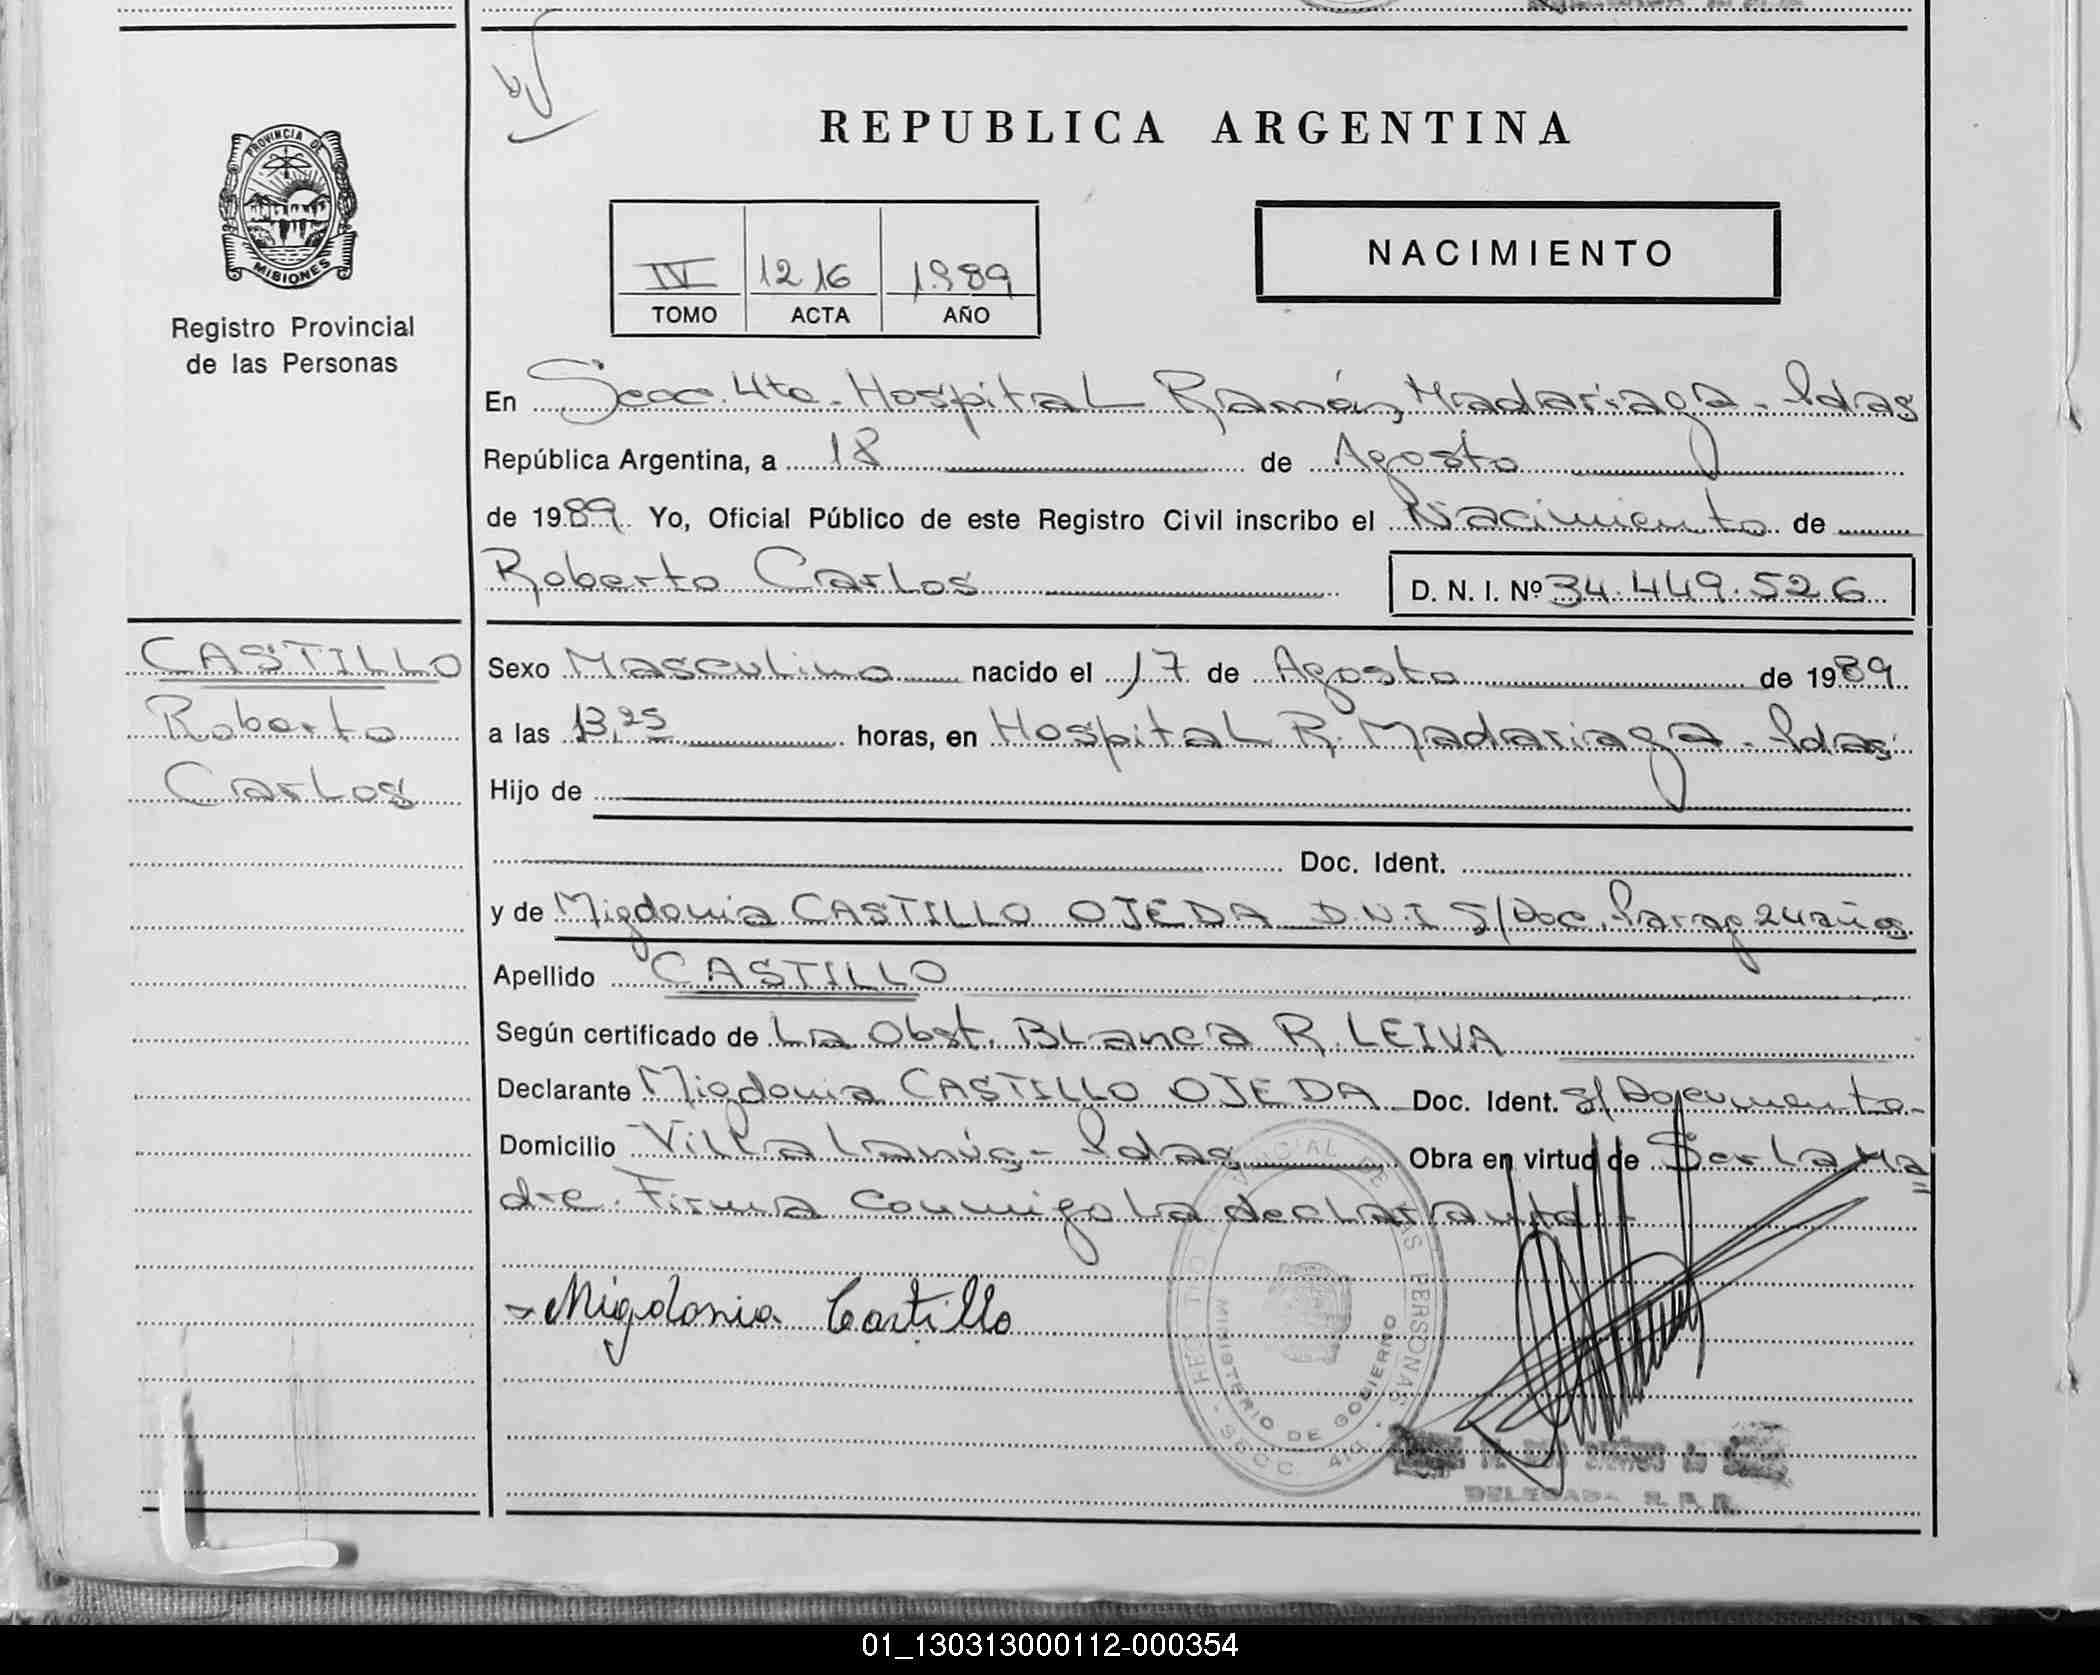 REPUBLICA ARGENTINA
PROVINCIA DE
MISIONES
Registro Provincial
de las Personas
IV 1216 1989
TOMO ACTA AÑO
NACIMIENTO
En Secc. 4ta. Hospital Ramón Madariaga - Pdas
República Argentina, a 18 de Agosto
de 1989. Yo, Oficial Público de este Registro Civil inscribo el Nacimiento de
Roberto Carlos D. N. I. Nº 34.449.526
CASTILLO
Roberto
Carlos
Sexo Masculino nacido el 17 de Agosto de 1989
a las 13,25 horas, en Hospital R. Madariaga - Pdas
Hijo de
Doc. Ident.
y de Migdonia CASTILLO OJEDA D.N.I S/Doc. Parag 24 años
Apellido CASTILLO
Según certificado de La Obst. BLanca R. LEIVA
Declarante Migdonia CASTILLO OJEDA Doc. Ident. S/Documento-
Domicilio Villa Lanús - Pdas Obra en virtud de Ser La Ma
dre. Firma conmigo la declarante
Migdonia Castillo
MINISTERIO DE GOBIERNO
DE LAS PERSONAS
SECC. 4ta.
DELEGADA R. P. P.
01_130313000112-000354